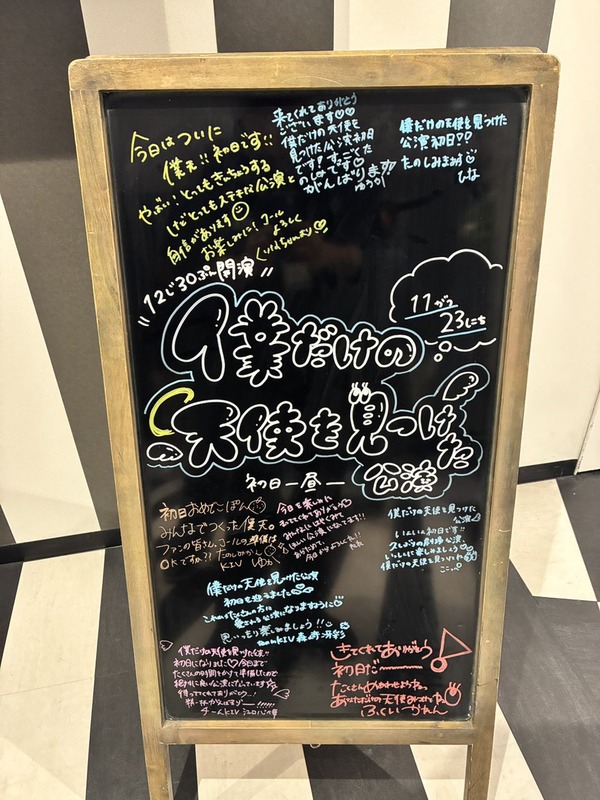 今日はついに
僕天!! 初日です!!
やばい!とってもきんちょうする
けどとってもステキな公演と
自信があります
お楽しみに! コール
よろしく
来てくれてありがとう
ございます♡♡
僕だけの天使を
見つけた公演初日
です!
がんばります
僕だけの天使を見つけた
公演初日♡♡
たのしみます
ひな
12じ30ぷん開演
11がつ
23にち
僕だけの
天使を見つけた
公演
初日ー昼ー
初日おめでこぽん
みんなでつくった僕天。
ファンの皆さん、コールの準備は
OKですか?!
KIV ゆか
今日を楽しみに
きてくれてありがとう♡
僕だけの天使を見つけた
公演
いよいよ初日です!!
久しぶりの劇場公演
いっしょに楽しみましょう
僕だけの天使を見つけてね
僕だけの天使を見つけた公演
初日を迎えました
これからたくさんの方に
愛される公演になりますように
思いっきり楽しみましょう!!
TeamKIV
僕だけの天使を見つけた公演!!
初日になりました♡今日まで
たくさんの時間をかけて準備したので
絶対に良い公演になっています
待っててくれてありがとう…!
チームKIV
きてくれてありがとう
初日だーーーー
たくさんめあわせようねっ
あなただけの天使みつけてね
ふくいかれん